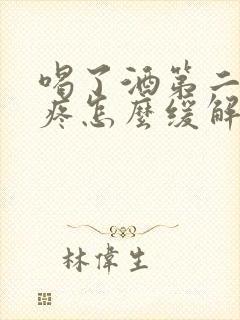 喝了酒第二
疼怎麼緩解
林偉生